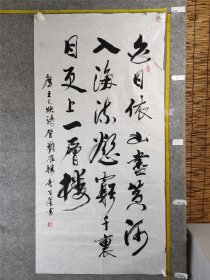 白日依山盡黄河
入海流慾窮千裏
目更上一層樓
唐王之煥詩登鸛雀樓